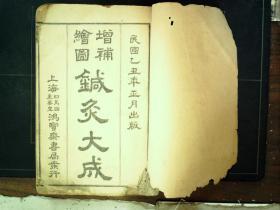 民國乙丑年正月出版
增補
繪圖
鍼灸大成
上海
鴻寶齋書局發行